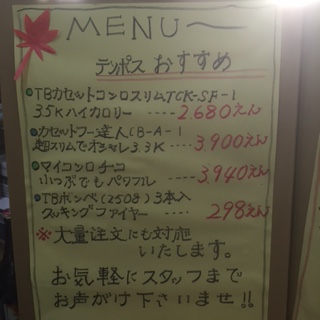 MENU
テンポス おすすめ
TBカセットコンロスリムTCK-SF-1
3.5Kハイカロリー ---- 2,680えん
カセットフー達人CB-A-1
超スリムでオシャレ3.3K ---- 3,900えん
マイコンロチコ
小っぷでもパワフル ---- 3,940えん
TBボンベ(250g)3本入
クッキングファイヤー ---- 298えん
※大量注文にも対応
いたします。
お気軽にスタッフまで
お声がけ下さいませ!!